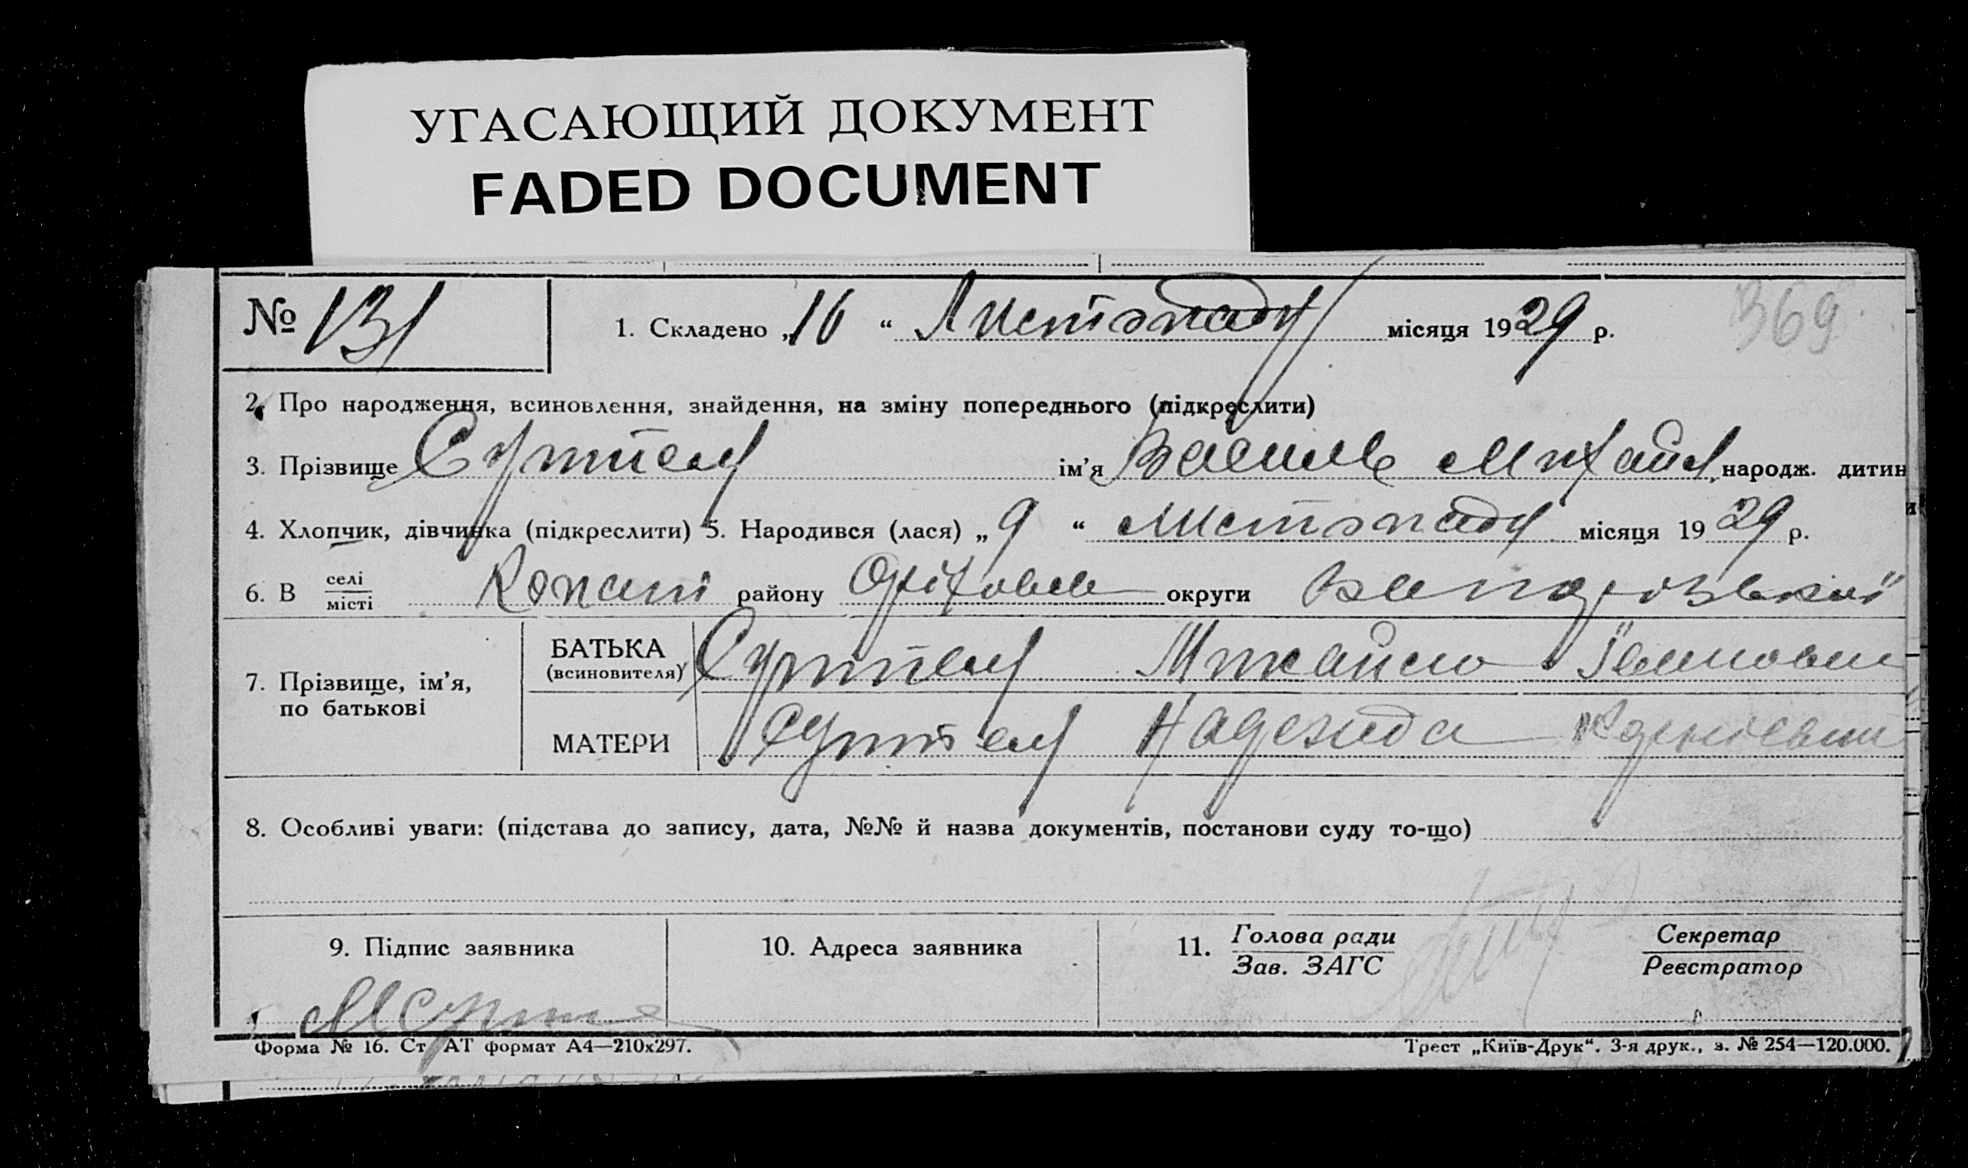 УГАСАЮЩИЙ ДОКУМЕНТ
FADED DOCUMENT
№ 131 1. Складено „16“ Листопаду місяця 1929 р. 369
2. Про народження, всиновлення, знайдення, на зміну попереднього (підкреслити)
3. Прізвище ім'я Василь Михайл. народж. дитин
4. Хлопчик, дівчинка (підкреслити) 5. Народився (лася) „9“ листопаду місяця 1929 р.
6. В селі/місті Копані району Оріхівськ округи Запорізької
7. Прізвище, ім'я, по батькові
БАТЬКА (всиновителя) Михайло
МАТЕРИ Надежда
8. Особливі уваги: (підстава до запису, дата, №№ й назва документів, постанови суду то-що)
9. Підпис заявника 10. Адреса заявника 11. Голова ради/Зав. ЗАГС Секретар/Реєстратор
Форма № 16. Ст. АТ формат А4—210х297. Трест „Київ-Друк“. 3-я друк., з. № 254—120.000.